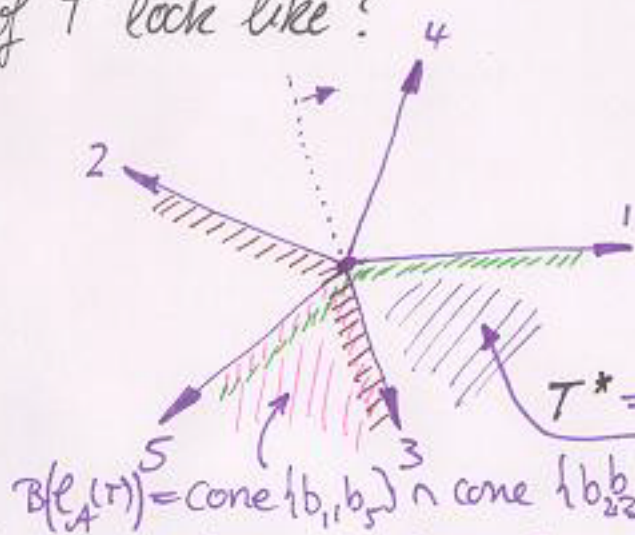 of T look like?
4
2
1
T* =
5
3
B(ℓ_A(T)) = cone{b₁, b₅} ∩ cone {b₂,